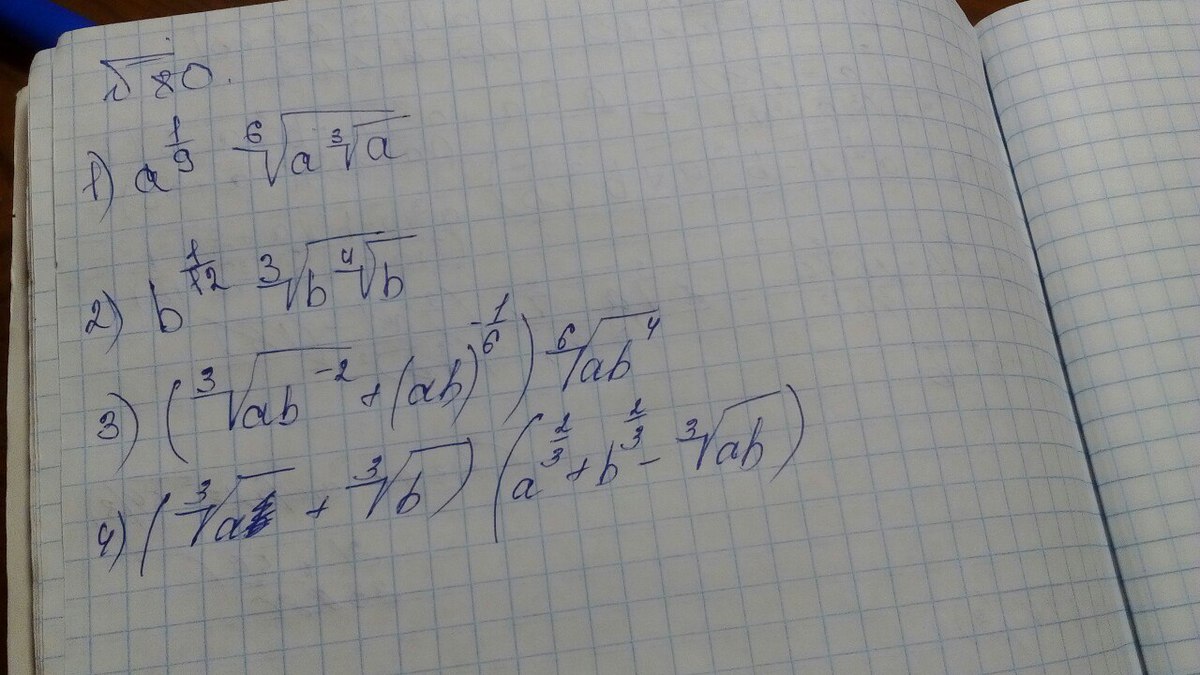 √80.
1) a^{1/9} \sqrt[6]{a\sqrt[3]{a}}
2) b^{1/12} \sqrt[3]{b\sqrt[4]{b}}
3) (\sqrt[3]{ab^{-2}} + (ab)^{-1/6}) \sqrt[6]{ab^4}
4) (\sqrt[3]{a} + \sqrt[3]{b}) (a^{2/3} + b^{2/3} - \sqrt[3]{ab})